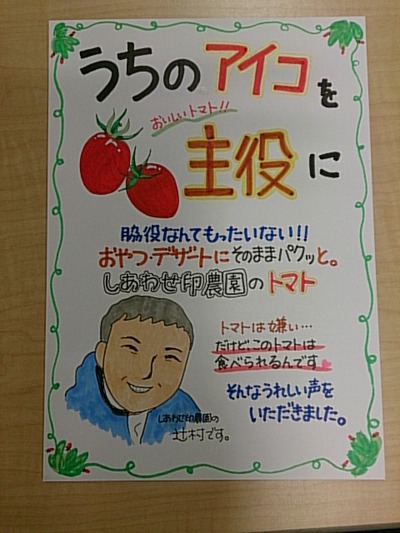 うちのアイコを
おいしいトマト!!
主役に
脇役なんてもったいない!!
おやつ・デザートにそのままパクッと。
しあわせ印農園のトマト
トマトは嫌い…
だけど、このトマトは
食べられるんです
そんなうれしい声を
いただきました。
しあわせ印農園の
辻村です。